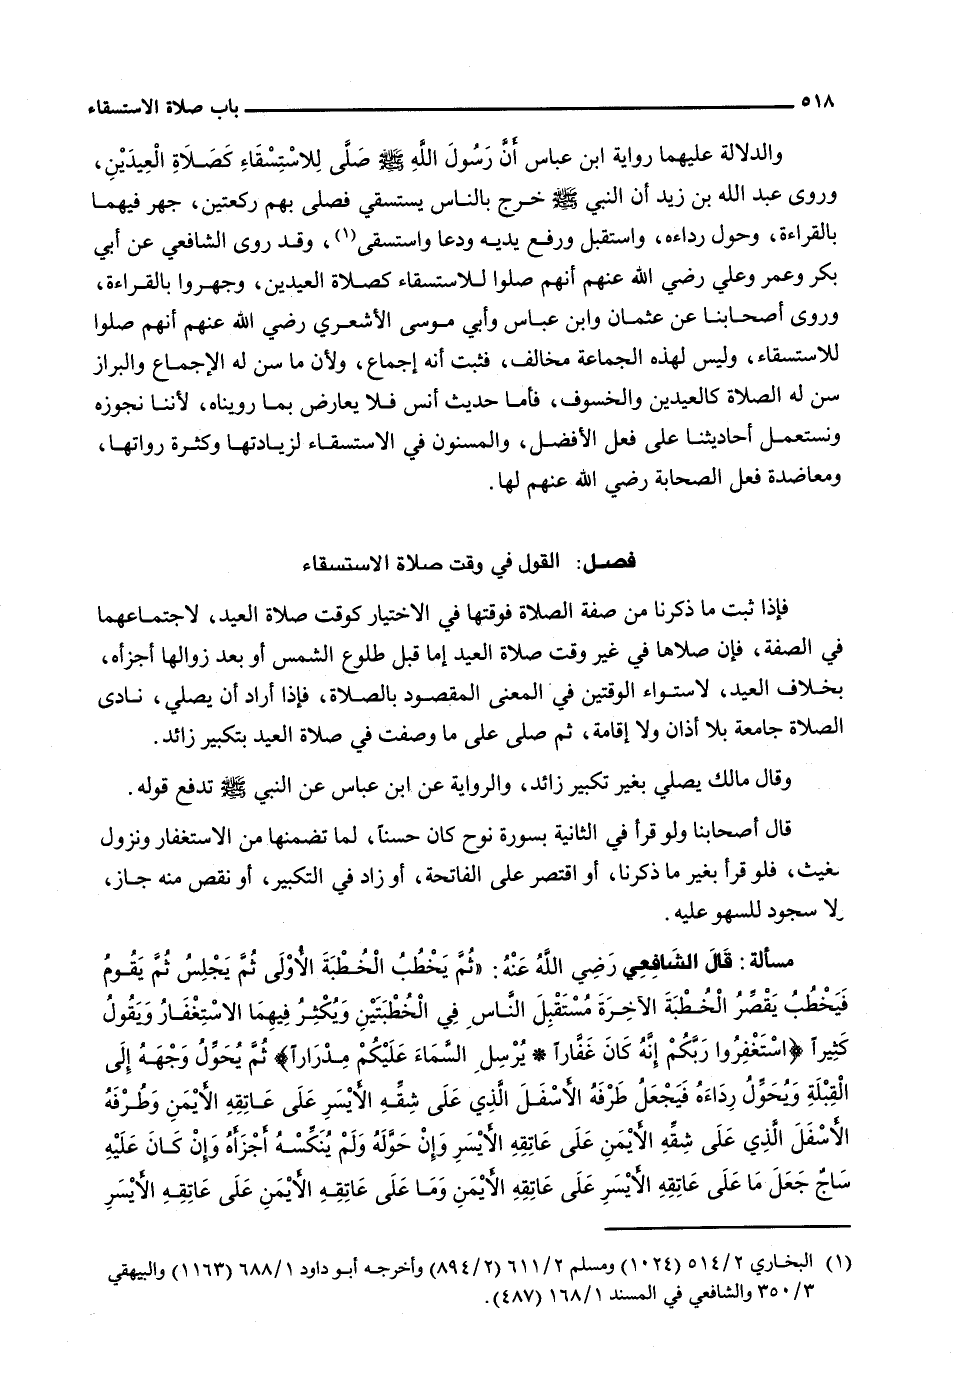 ٥١٨ باب صلاة الاستسقاء
والدلالة عليهما رواية ابن عباس أَنَّ رَسُولَ اللَّهِ ﷺ صَلَّى لِلاسْتِسْقَاءِ كَصَلَاةِ الْعِيدَيْنِ،
وروى عبد الله بن زيد أن النبي ﷺ خرج بالناس يستسقي فصلى بهم ركعتين، جهر فيهما
بالقراءة، وحول رداءه، واستقبل ورفع يديه ودعا واستسقى(١)، وقد روى الشافعي عن أبي
بكر وعمر وعلي رضي الله عنهم أنهم صلوا للاستسقاء كصلاة العيدين، وجهروا بالقراءة،
وروى أصحابنا عن عثمان وابن عباس وأبي موسى الأشعري رضي الله عنهم أنهم صلوا
للاستسقاء، وليس لهذه الجماعة مخالف، فثبت أنه إجماع، ولأن ما سن له الإجماع والبراز
سن له الصلاة كالعيدين والخسوف، فأما حديث أنس فلا يعارض بما رويناه، لأننا نجوزه
ونستعمل أحاديثنا على فعل الأفضل، والمسنون في الاستسقاء لزيادتها وكثرة رواتها،
ومعاضدة فعل الصحابة رضي الله عنهم لها.
فصل: القول في وقت صلاة الاستسقاء
فإذا ثبت ما ذكرنا من صفة الصلاة فوقتها في الاختيار كوقت صلاة العيد، لاجتماعهما
في الصفة، فإن صلاها في غير وقت صلاة العيد إما قبل طلوع الشمس أو بعد زوالها أجزأه،
بخلاف العيد، لاستواء الوقتين في المعنى المقصود بالصلاة، فإذا أراد أن يصلي، نادى
الصلاة جامعة بلا أذان ولا إقامة، ثم صلى على ما وصفت في صلاة العيد بتكبير زائد.
وقال مالك يصلي بغير تكبير زائد، والرواية عن ابن عباس عن النبي ﷺ تدفع قوله.
قال أصحابنا ولو قرأ في الثانية بسورة نوح كان حسناً، لما تضمنها من الاستغفار ونزول
لغيث، فلو قرأ بغير ما ذكرنا، أو اقتصر على الفاتحة، أو زاد في التكبير، أو نقص منه جاز،
لا سجود للسهو عليه.
مسألة: قَالَ الشَّافِعِي رَضِي اللَّهُ عَنْهُ: «ثُمَّ يَخْطُبُ الْخُطْبَةَ الْأُولَى ثُمَّ يَجْلِسُ ثُمَّ يَقُومُ
فَيَخْطُبُ يَقْصِّرُ الْخُطْبَةَ الآخِرَةَ مُسْتَقْبِلَ النَّاسِ فِي الْخُطْبَتَيْنِ وَيُكْثِرُ فِيهِمَا الاسْتِغْفَارُ وَيَقُولُ
كَثِيراً ﴿اسْتَغْفِرُوا رَبَّكُمْ إِنَّهُ كَانَ غَفَّاراً * يُرْسِلِ السَّمَاءَ عَلَيْكُمْ مِدْرَاراً﴾ ثُمَّ يُحَوِّلُ وَجْهَهُ إِلَى
الْقِبْلَةِ وَيُحَوِّلُ رِدَاءَهُ فَيَجْعَلُ طَرْفَهُ الأَسْفَلَ الَّذِي عَلَى شِقِّهِ الأَيْسَرِ عَلَى عَاتِقِهِ الأَيْمَنِ وَطُرْفَهُ
الأَسْفَلَ الَّذِي عَلَى شِقِّهِ الأَيْمَنِ عَلَى عَاتِقِهِ الأَيْسَرِ وَإِنْ حَوَّلَهُ وَلَمْ يُنَكِّسْهُ أَجْزَأَهُ وَإِنْ كَانَ عَلَيْهِ
سَاجٌ جَعَلَ مَا عَلَى عَاتِقِهِ الأَيْسَرِ عَلَى عَاتِقِهِ الأَيْمَنِ وَمَا عَلَى عَاتِقِهِ الأَيْمَنِ عَلَى عَاتِقِهِ الأَيْسَرِ
(١) البخاري ٥١٤/٢ (١٠٢٤) ومسلم ٦١١/٢ (٨٩٤/٢) وأخرجه أبو داود ٦٨٨/١ (١١٦٣) والبيهقي
٣٥٠/٣ والشافعي في المسند ١٦٨/١ (٤٨٧).